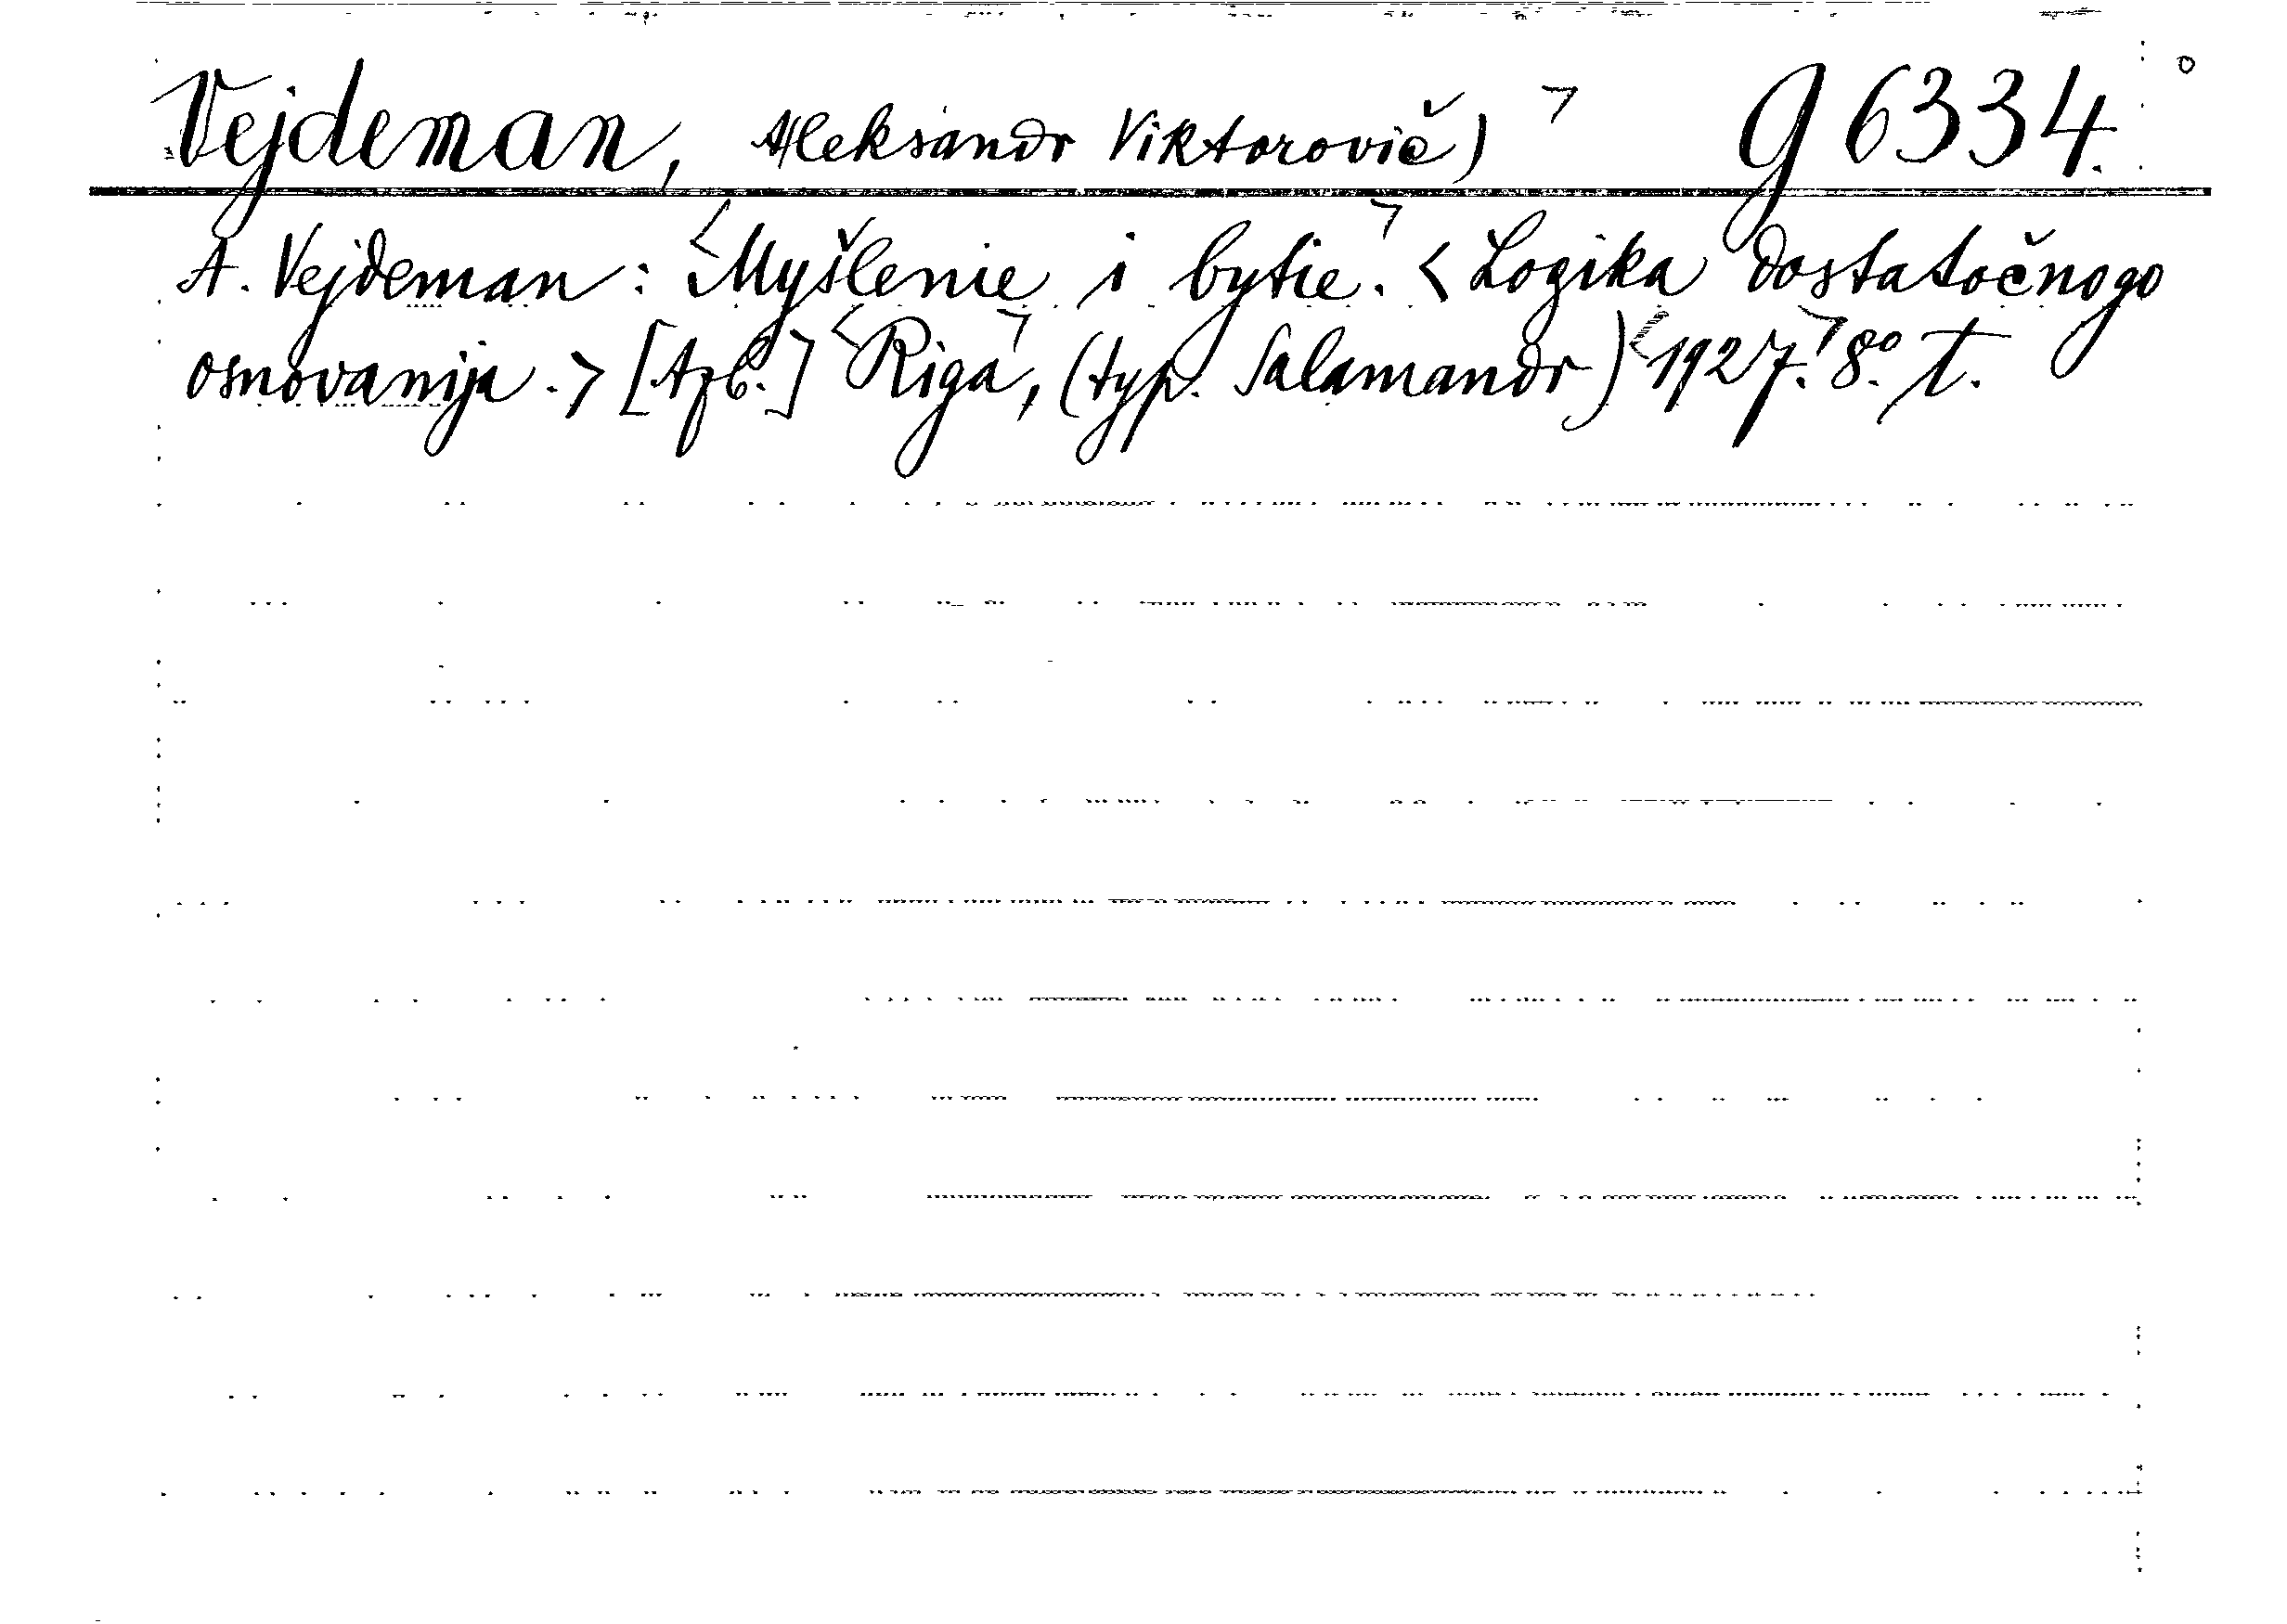 Vejdeman, Aleksandr Viktorovič) g 6334.
A. Vejdeman: Myšlenie i bytie. <Logika dostatočnogo
osnovanija.> [Azb.] Riga, (typ. Salamandr) 1927. 8°. T.